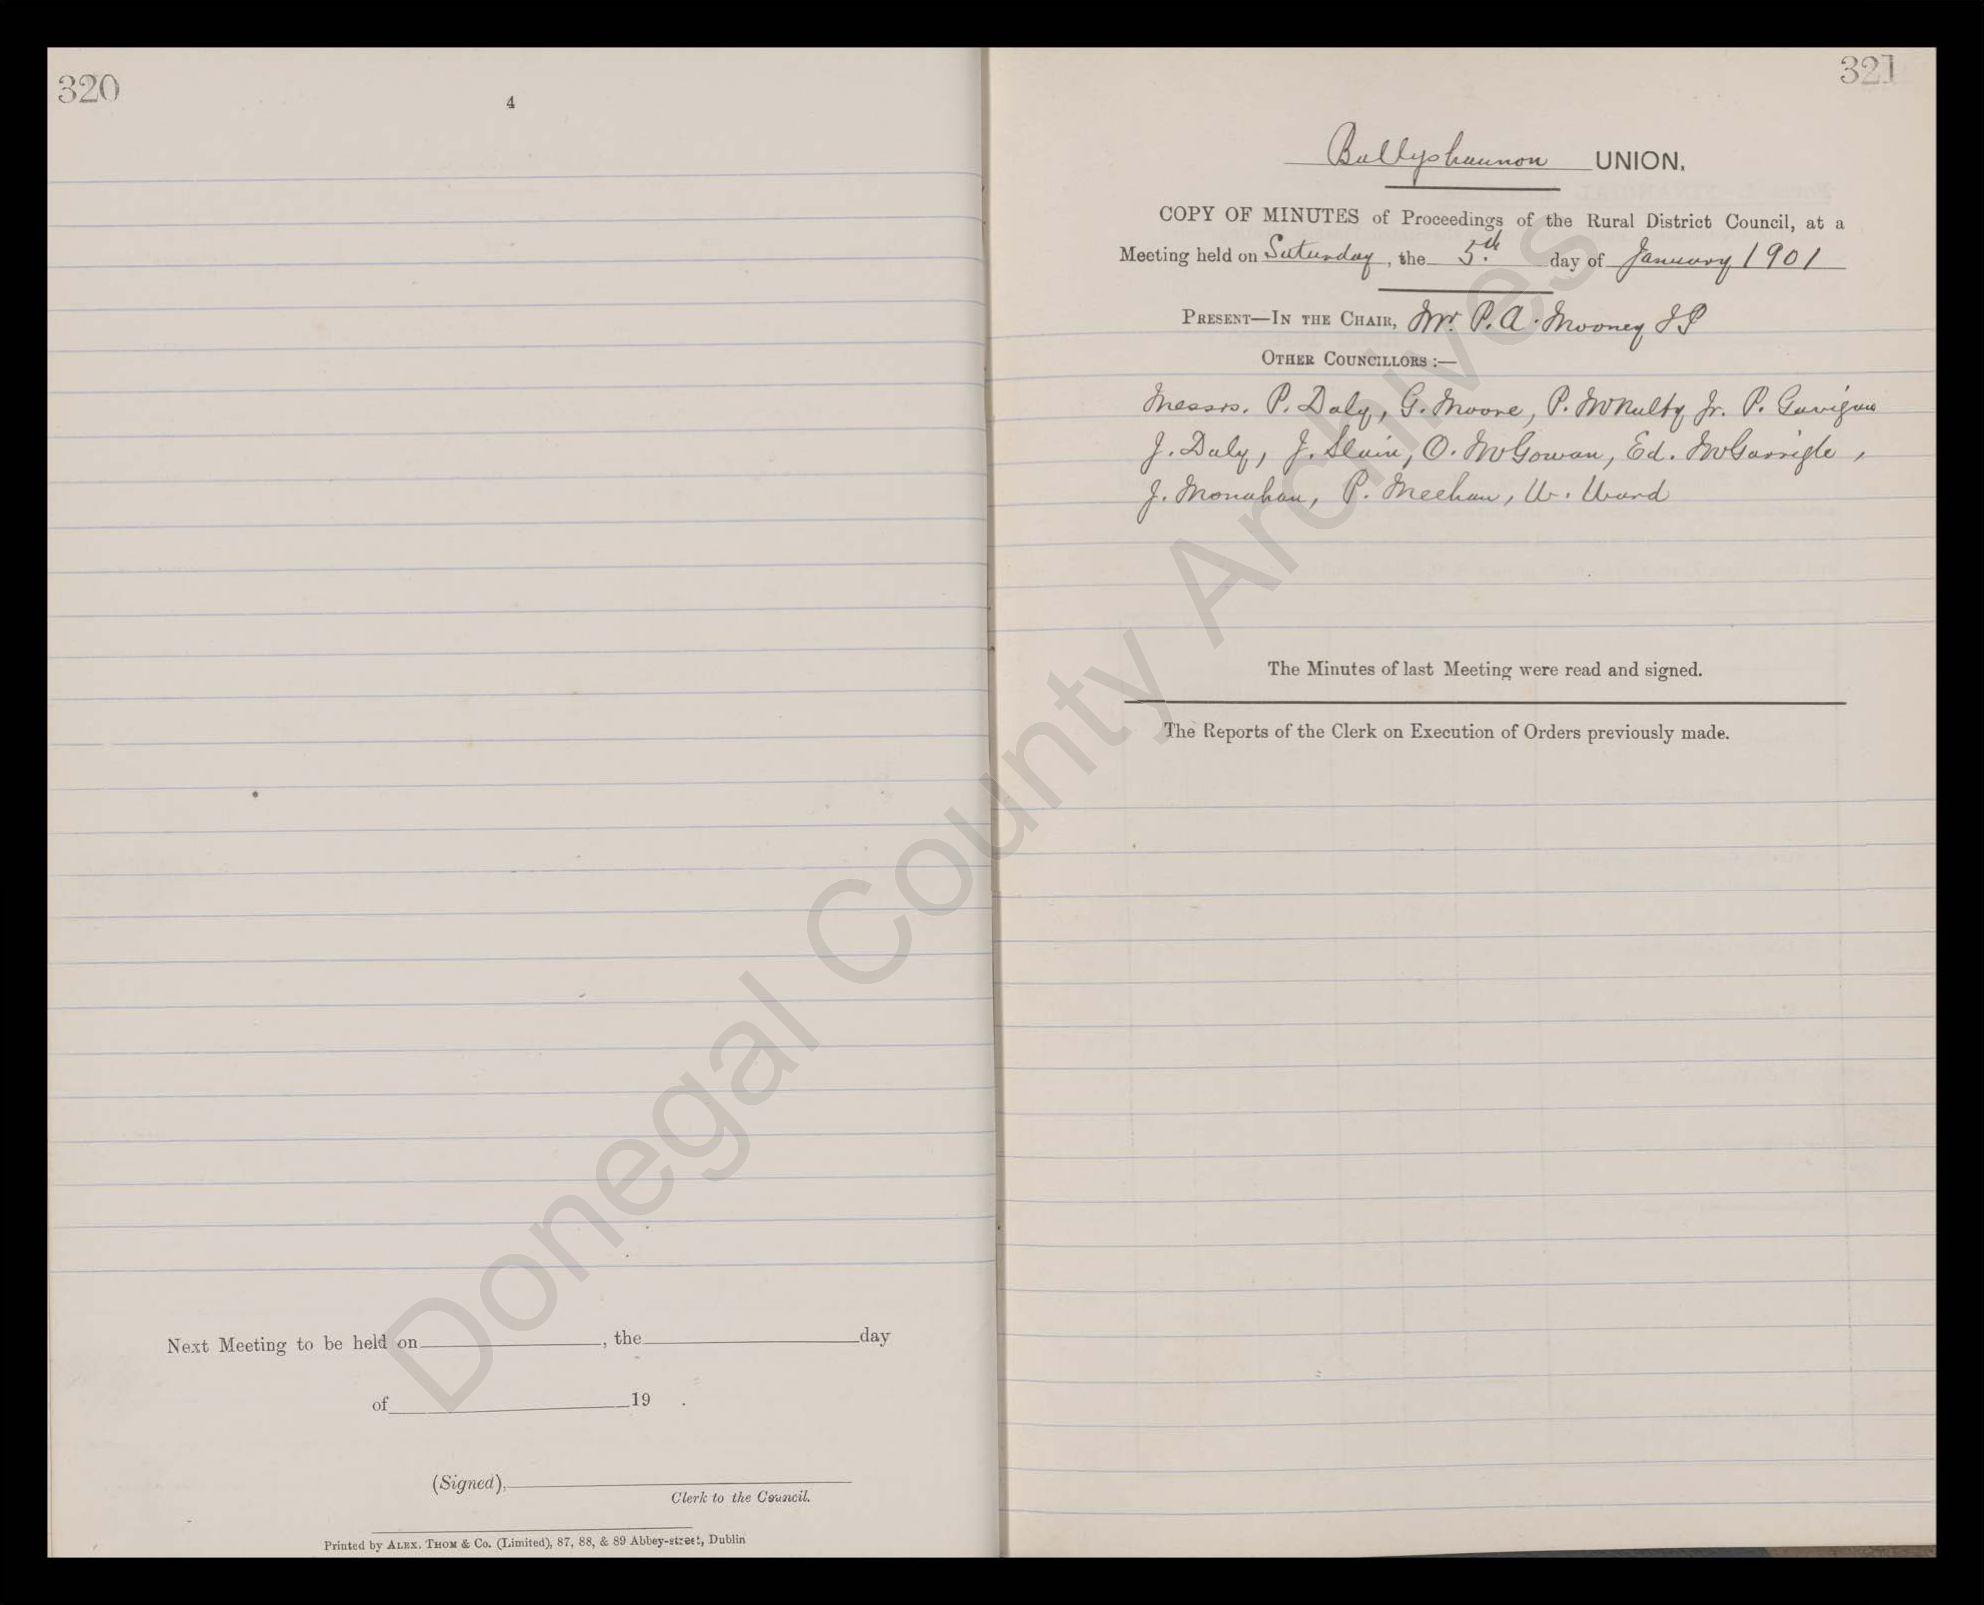 320
4
Next Meeting to be held on , the day
of 19 .
(Signed),
Clerk to the Council.
Printed by ALEX. THOM & Co. (Limited), 87, 88, & 89 Abbey-street, Dublin
321
Ballyshannon UNION.
COPY OF MINUTES of Proceedings of the Rural District Council, at a
Meeting held on Saturday, the 5th. day of January 1901
PRESENT—IN THE CHAIR, Mr. P. A. Mooney JP
OTHER COUNCILLORS :—
Messrs. P. Daly, G. Moore, P. McNulty Jr. P. Gavigan
J. Daly, J. Slevin, O. McGowan, Ed. McGarrigle,
J. Monahan, P. Meehan, W. Ward
The Minutes of last Meeting were read and signed.
The Reports of the Clerk on Execution of Orders previously made.
Donegal County Archives